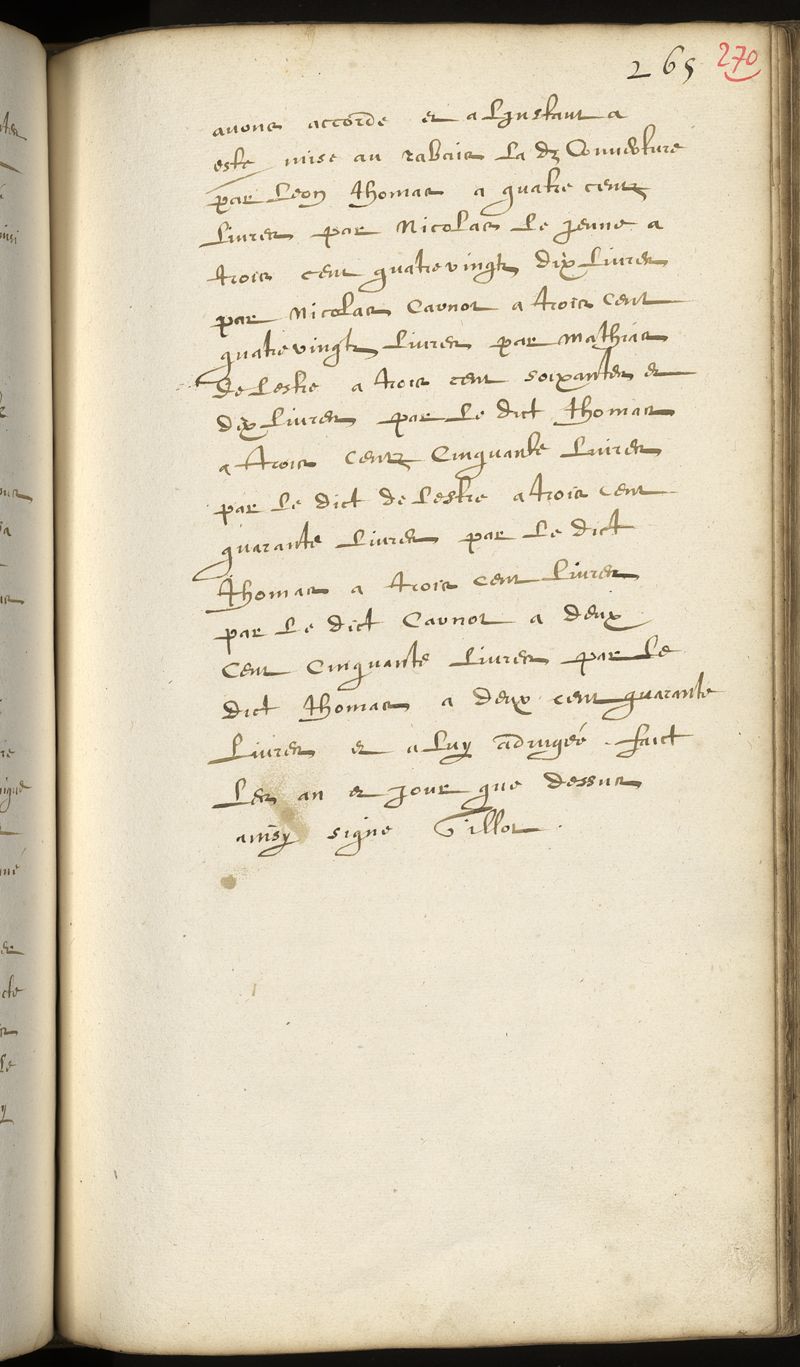 265 270
avons accordé et a Linstant a
este mise au rabais La d Couverture
par Leon Thomas a quatre centz
Livres par Nicolas Le Jeune a
trois cent quatrevingtz dix Livres
par Nicolas Carnot a trois Cent
quatrevingtz Livres par Mathias
De Lestre a trois cent soixantes et
dix Livres par Le dict Thomas
a trois Centz Cinquante Livres
par Le dict de Lestre a trois cent
quarante Livres par Le dict
Thomas a trois cent Livres
par Le dict Carnot a deux
Cent Cinquante Livres par Le
dict Thomas a deux cent quarante
Livres et a Luy adiugée faict
Les an et Jour que dessus
ainsy signe Gillot .